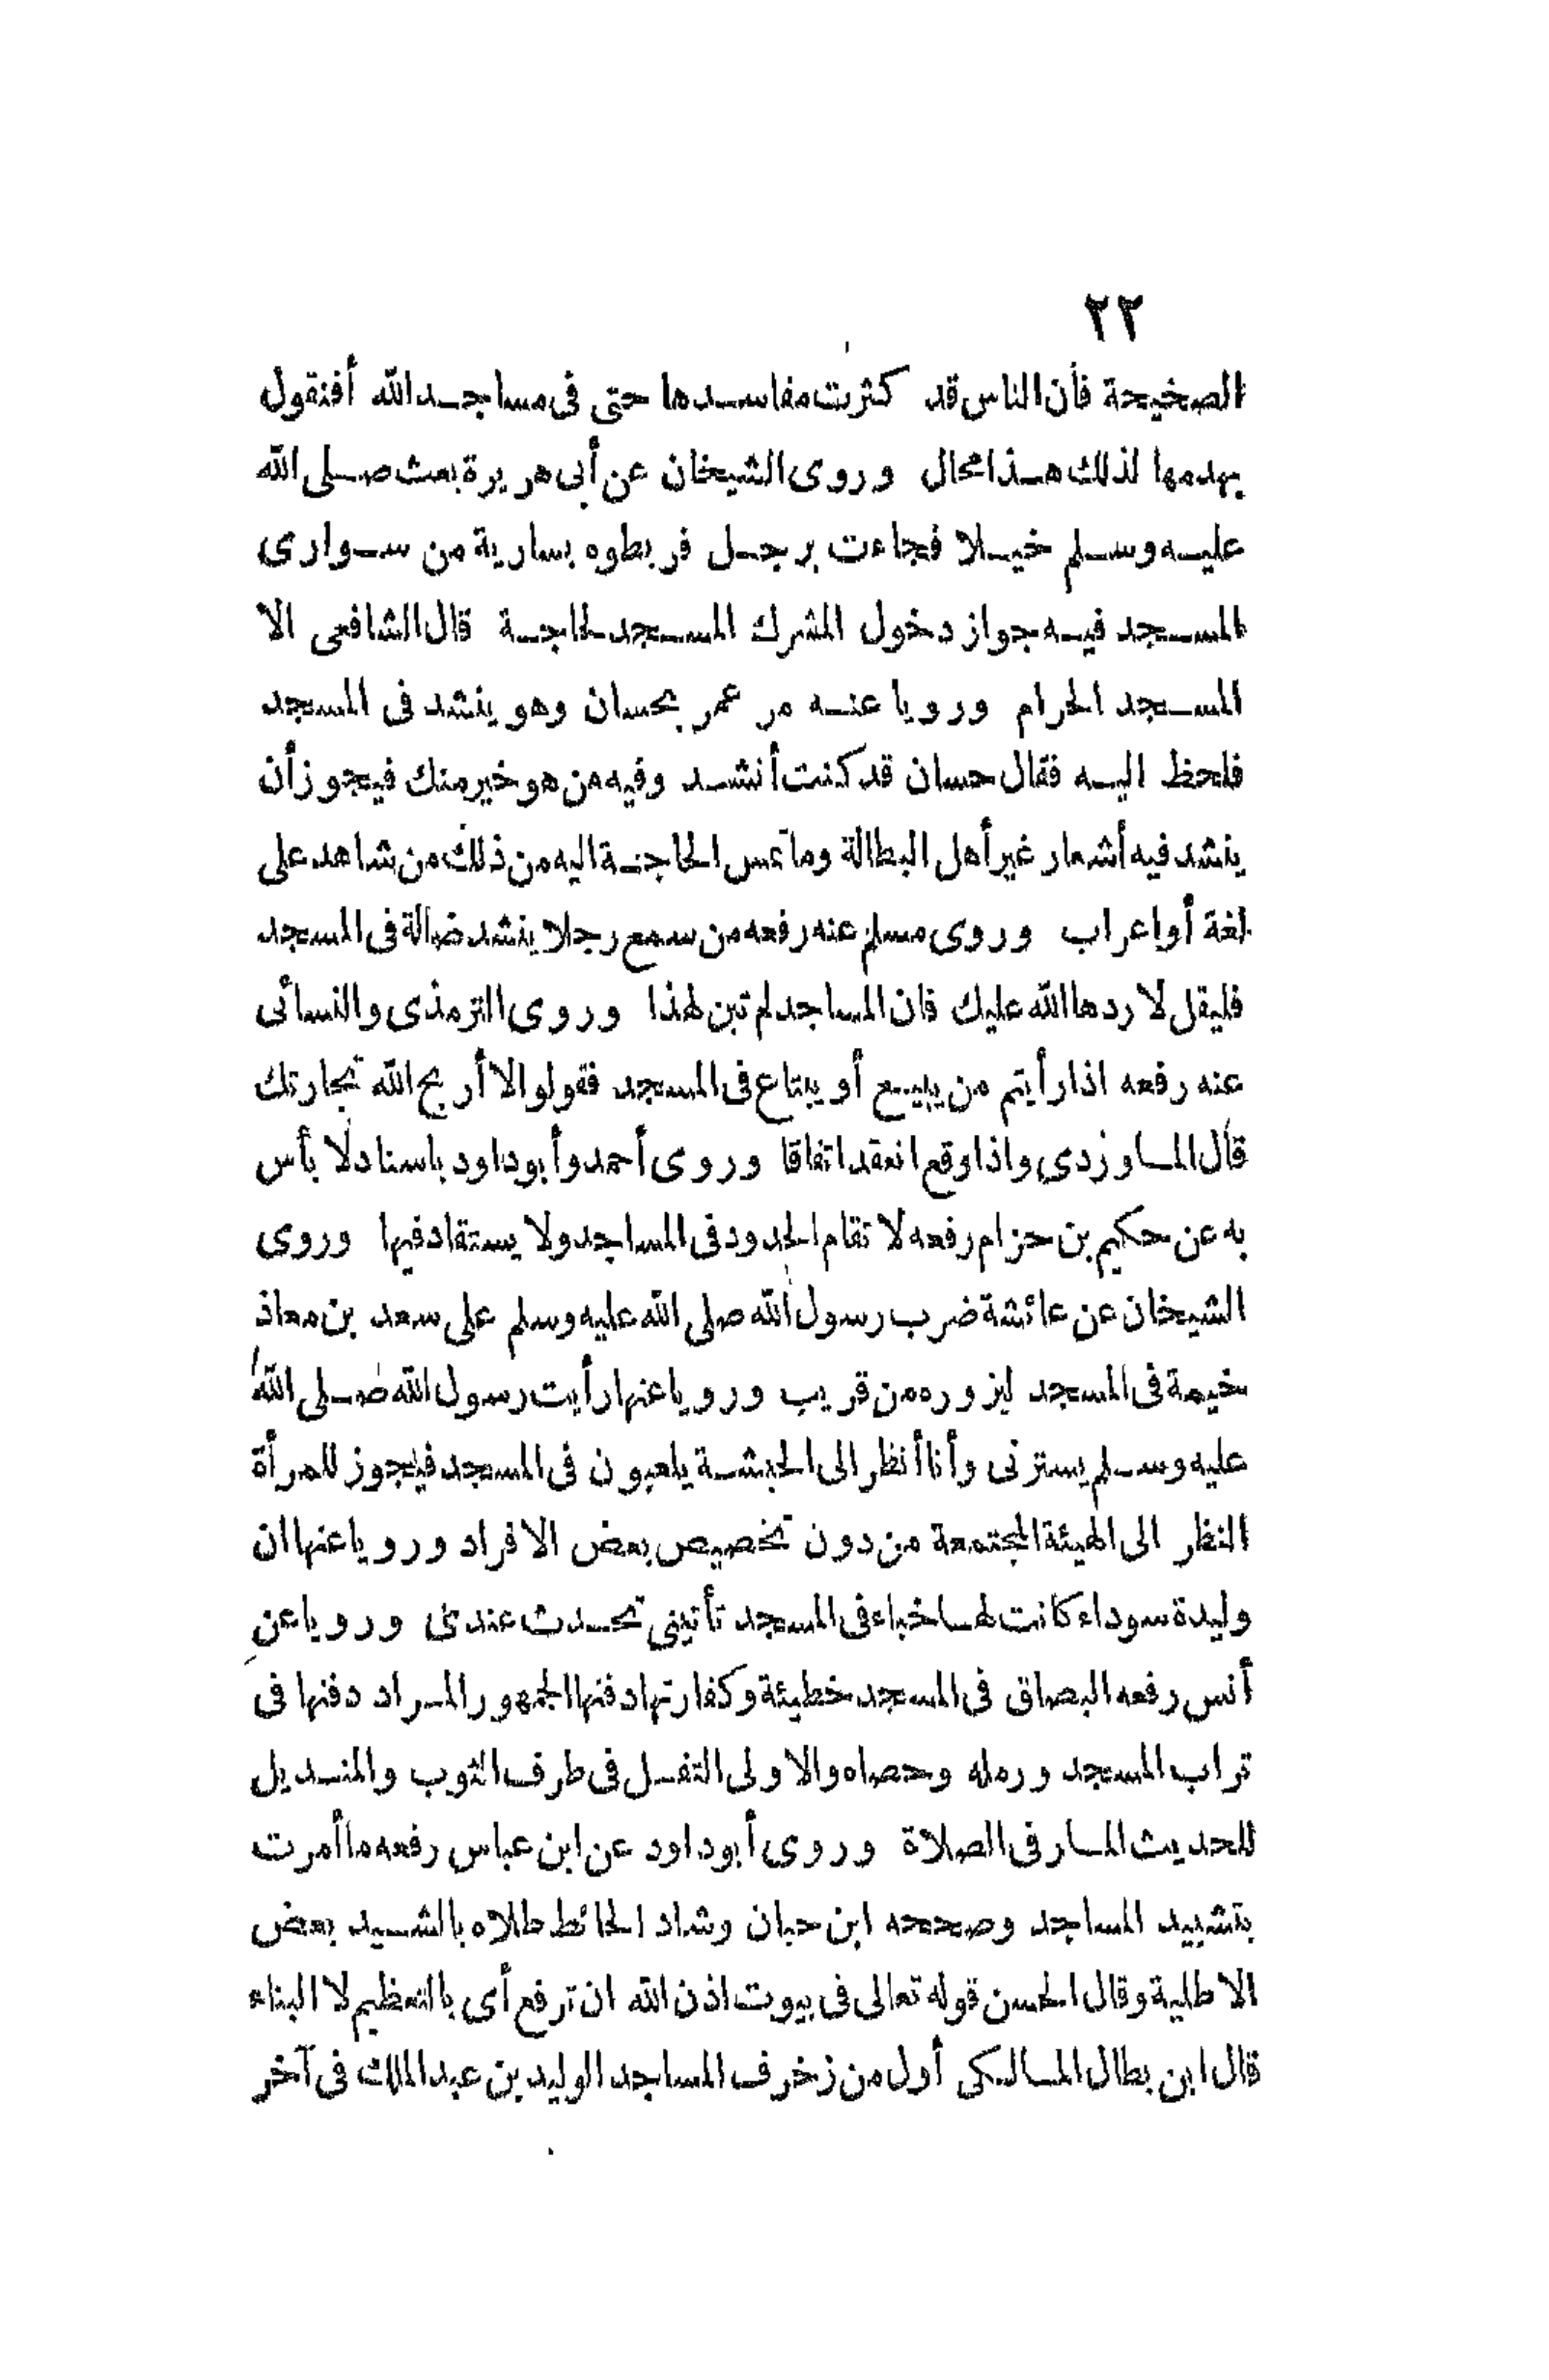 ٢٢
الصحيحة فان الناس قد كثرت مفاسدها حتى فى مساجد الله أفنقول
بهدمها لذلك هذا محال وروى الشيخان عن أبى هريرة بعث صلى الله
عليه وسلم خيلا فجاءت برجل فربطوه بسارية من سوارى
المسجد فيه جواز دخول المشرك المسجد لحاجة قال الشافعى الا
المسجد الحرام ورويا عنه مر عمر بحسان وهو ينشد فى المسجد
فلحظ اليه فقال حسان قد كنت أنشد وفيه من هو خير منك فيجوز أن
ينشد فيه أشعار غير أهل البطالة وما تمس الحاجة اليه من ذلك من شاهد على
لغة أو اعراب وروى مسلم عنه رفعه من سمع رجلا ينشد ضالة فى المسجد
فليقل لا ردها الله عليك فان المساجد لم تبن لهذا وروى الترمذى والنسائى
عنه رفعه اذا رأيتم من يبيع أو يبتاع فى المسجد فقولوا لا أربح الله تجارتك
قال الماوردى واذا وقع انعقد اتفاقا وروى أحمد وأبو داود باسناد لا بأس
به عن حكيم بن حزام رفعه لا تقام الحدود فى المساجد ولا يستقاد فيها وروى
الشيخان عن عائشة ضرب رسول الله صلى الله عليه وسلم على سعد بن معاذ
خيمة فى المسجد ليزوره من قريب ورويا عنها رأيت رسول الله صلى الله
عليه وسلم يسترنى وأنا أنظر الى الحبشة يلعبون فى المسجد فيجوز للمرأة
النظر الى الهيئة المجتمعة من دون تخصيص بعض الافراد ورويا عنها ان
وليدة سوداء كانت لها خباء فى المسجد تأتينى تحدث عندى ورويا عن
أنس رفعه البصاق فى المسجد خطيئة وكفارتها دفنها الجمهور المراد دفنها فى
تراب المسجد ورمله وحصاه والاولى التفل فى طرف الثوب والمنديل
للحديث المار فى الصلاة وروى أبو داود عن ابن عباس رفعه ما أمرت
بتشييد المساجد وصححه ابن حبان وشاد الحائط طلاه بالشيد بعض
الاطلية وقال الحسن قوله تعالى فى بيوت اذن الله ان ترفع أى بالتعظيم لا البناء
قال ابن بطال المالكى أول من زخرف المساجد الوليد بن عبد الملك فى آخر